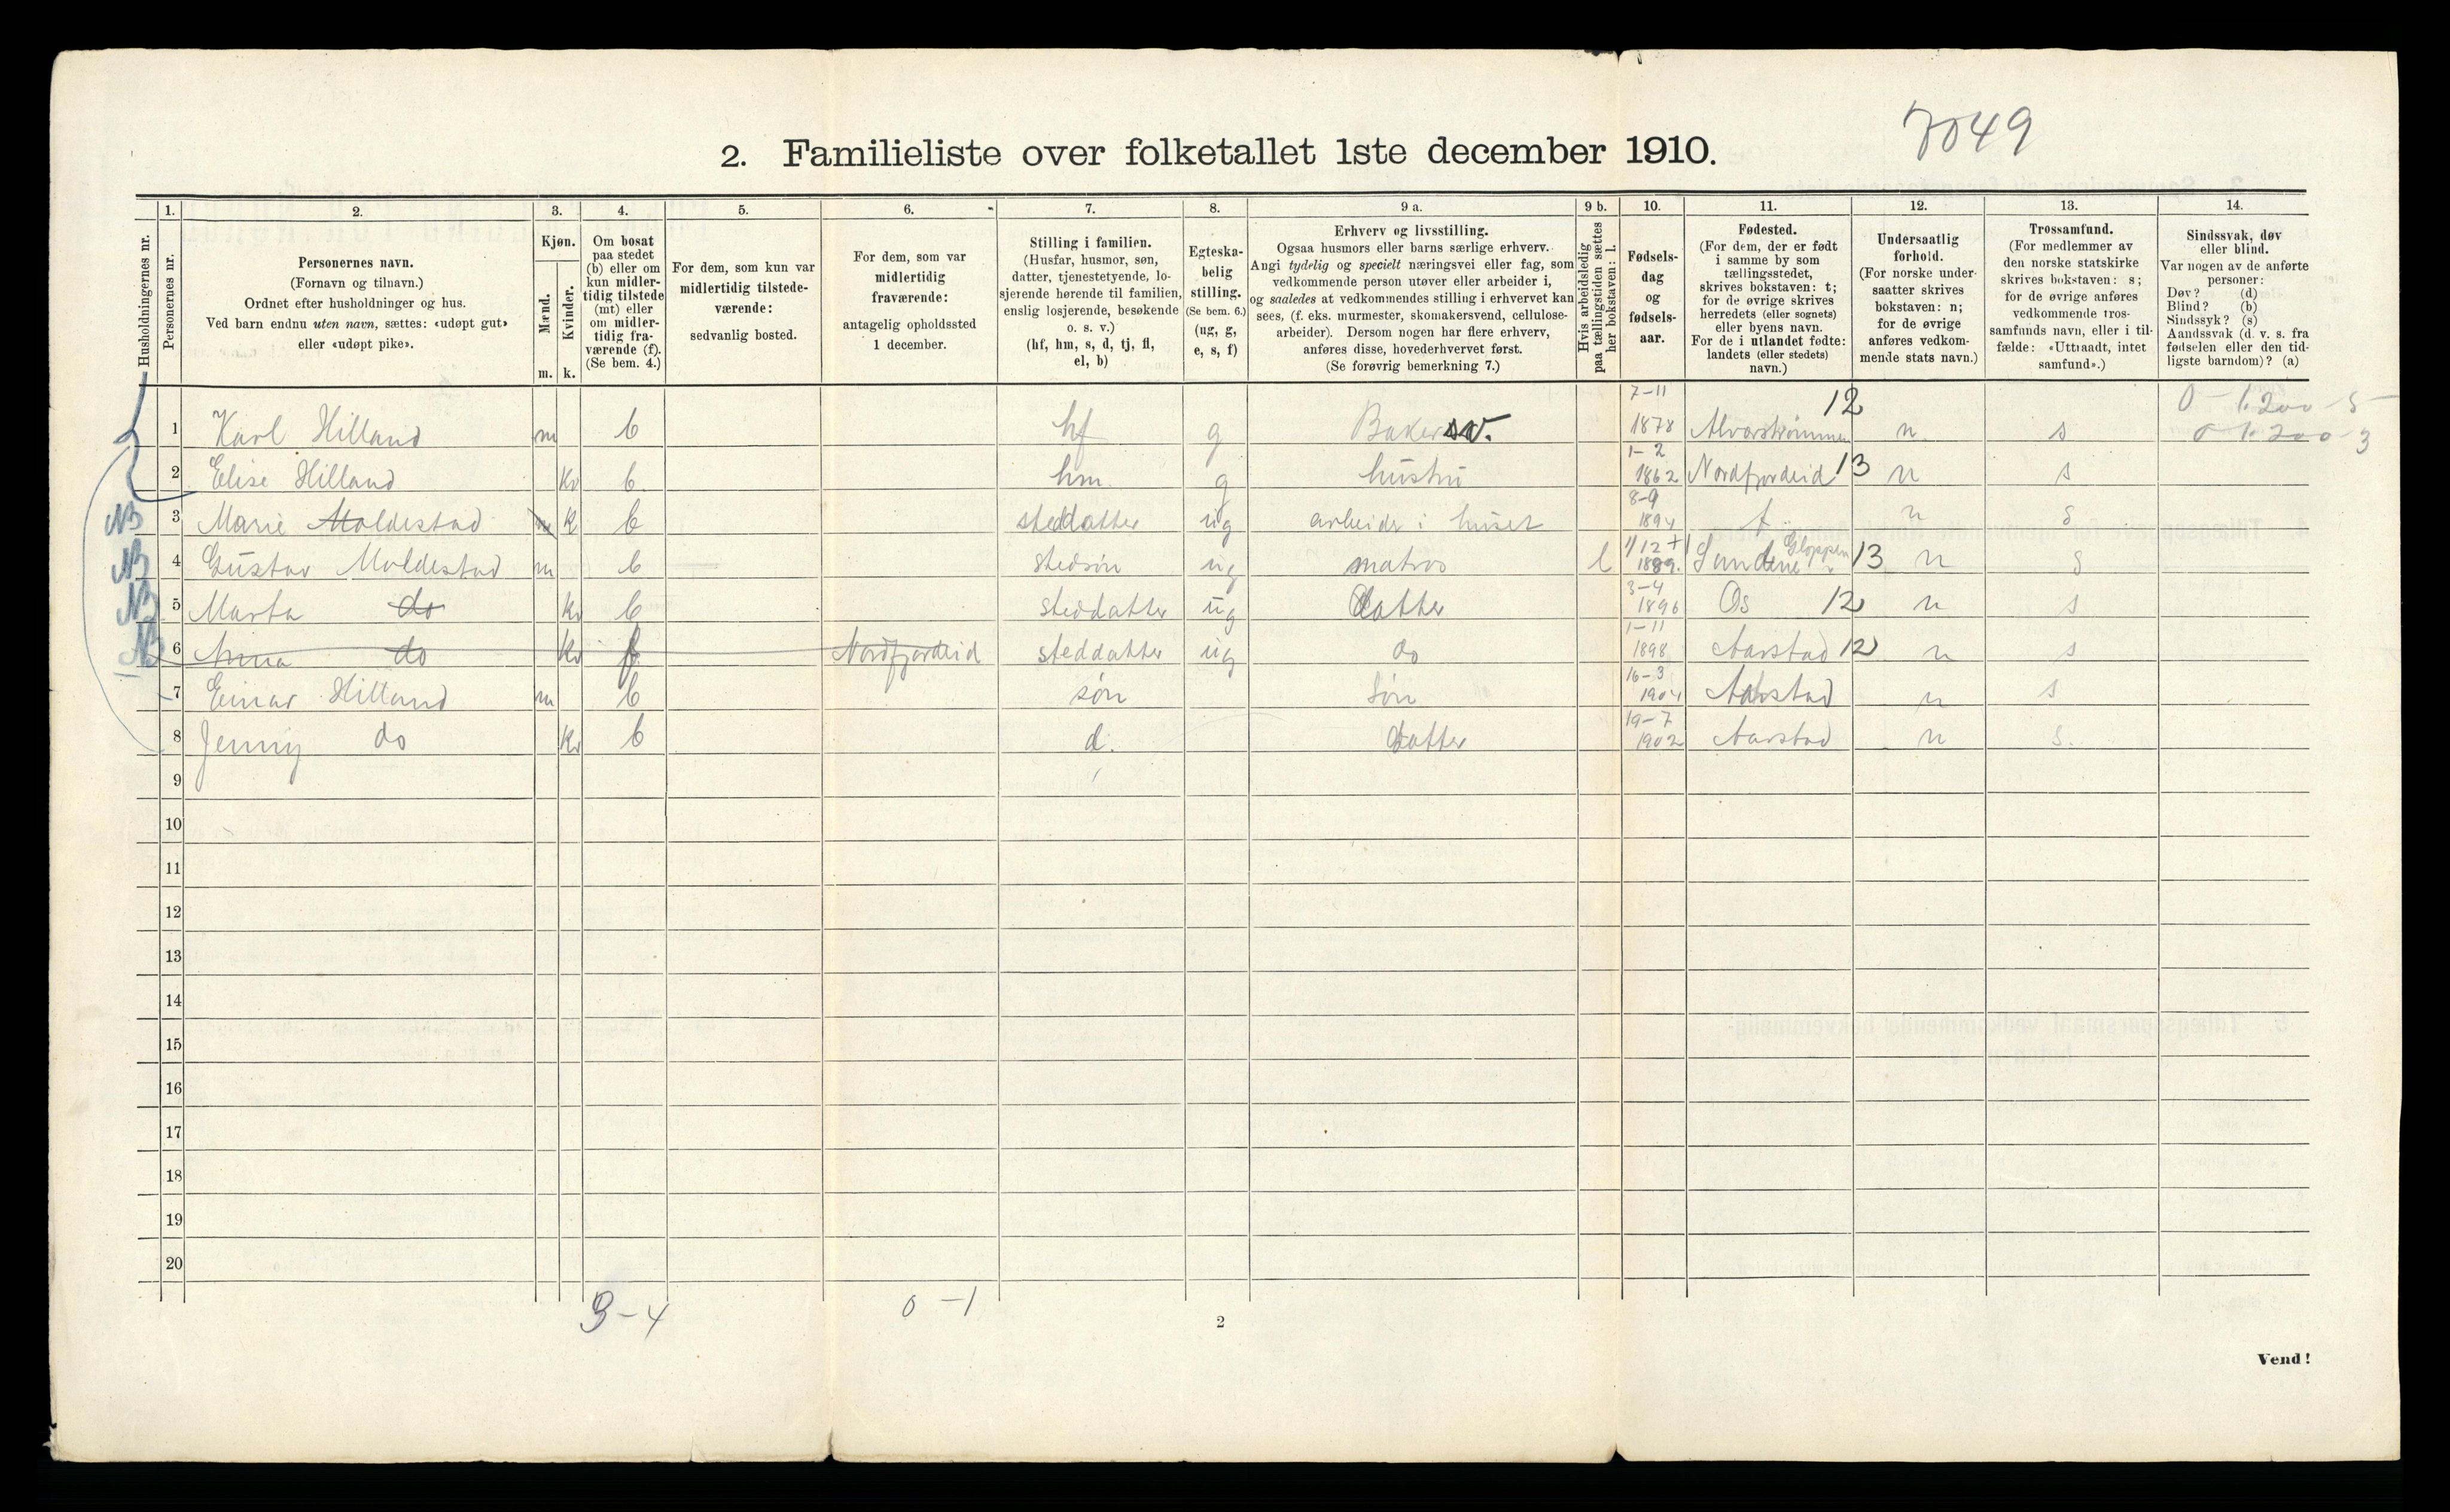 7049
2. Familieliste over folketallet 1ste december 1910.
Husholdningernes nr.
1. 2. 3. 4. 5. 6. 7. 8. 9 a. 9 b. 10. 11. 12. 13. 14.
Personernes nr.
Personernes navn.
(Fornavn og tilnavn.)
Ordnet efter husholdninger og hus.
Ved barn endnu uten navn, sættes: «udøpt gut»
eller «udøpt pike».
Kjøn.
Mænd.
Kvinder.
m. k.
Om bosat
paa stedet
(b) eller om
kun midler-
tidig tilstede
(mt) eller
om midler-
tidig fra-
værende (f).
(Se bem. 4.)
For dem, som kun var
midlertidig tilstede-
værende:
sedvanlig bosted.
For dem, som var
midlertidig
fraværende:
antagelig opholdssted
1 december.
Stilling i familien.
(Husfar, husmor, søn,
datter, tjenestetyende, lo-
sjerende hørende til familien,
enslig losjerende, besøkende
o. s. v.)
(hf, hm, s, d, tj, fl,
el, b)
Egteska-
belig
stilling.
(Se bem. 6.)
(ug, g,
e, s, f)
Erhverv og livsstilling.
Ogsaa husmors eller barns særlige erhverv.
Angi tydelig og specielt næringsvei eller fag, som
vedkommende person utøver eller arbeider i,
og saaledes at vedkommendes stilling i erhvervet kan
sees, (f. eks. murmester, skomakersvend, cellulose-
arbeider). Dersom nogen har flere erhverv,
anføres disse, hovederhvervet først.
(Se forøvrig bemerkning 7.)
Hvis arbeidsledig
paa tællingstiden sættes
her bokstaven: l.
Fødsels-
dag
og
fødsels-
aar.
Fødested.
(For dem, der er født
i samme by som
tællingsstedet,
skrives bokstaven: t;
for de øvrige skrives
herredets (eller sognets)
eller byens navn.
For de i utlandet fødte:
landets (eller stedets)
navn.)
Undersaatlig
forhold.
(For norske under-
saatter skrives
bokstaven: n;
for de øvrige
anføres vedkom-
mende stats navn.)
Trossamfund.
(For medlemmer av
den norske statskirke
skrives bokstaven: s;
for de øvrige anføres
vedkommende tros-
samfunds navn, eller i til-
fælde: «Uttraadt, intet
samfund».)
Sindssvak, døv
eller blind.
Var nogen av de anførte
personer:
Døv? (d)
Blind? (b)
Sindssyk? (s)
Aandssvak (d. v. s. fra
fødselen eller den tid-
ligste barndom)? (a)
0 - 1.200 - 5
0 1.200 3
1 Karl Hilland m b hf g Bakersv. 7-11 1878 Alvorstrømmen 12 n s
2 Elise Hilland Kv b. hm. g hustru 1-2 1862 Nordfjordeid 13 n s
NB 3 Marie Moldestad k b steddatter ug arbeide i huset 8-9 1894 t n s
NB 4 Gustav Moldestad m b stedsøn ug matros l 1/12 1889. Sandene Gloppen 13 n s
NB 5 Marta do Kv b steddatter ug Datter 3-4 1896 Os 12 n s
NB 6 Anna do Kv f Nordfjordeid steddatter ug do 1-11 1898 Aarstad 12 n s
7 Einar Hilland m b søn Søn 16-3 1904 Aarstad n s
8 Jenny do Kv b d. Datter 19-7 1902 Aarstad n s.
9
10
11
12
13
14
15
16
17
18
19
20
3-4 0-1
2
Vend!